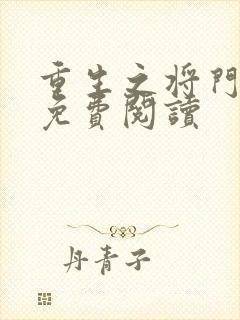 重生之将門
免費閱讀
丹青子